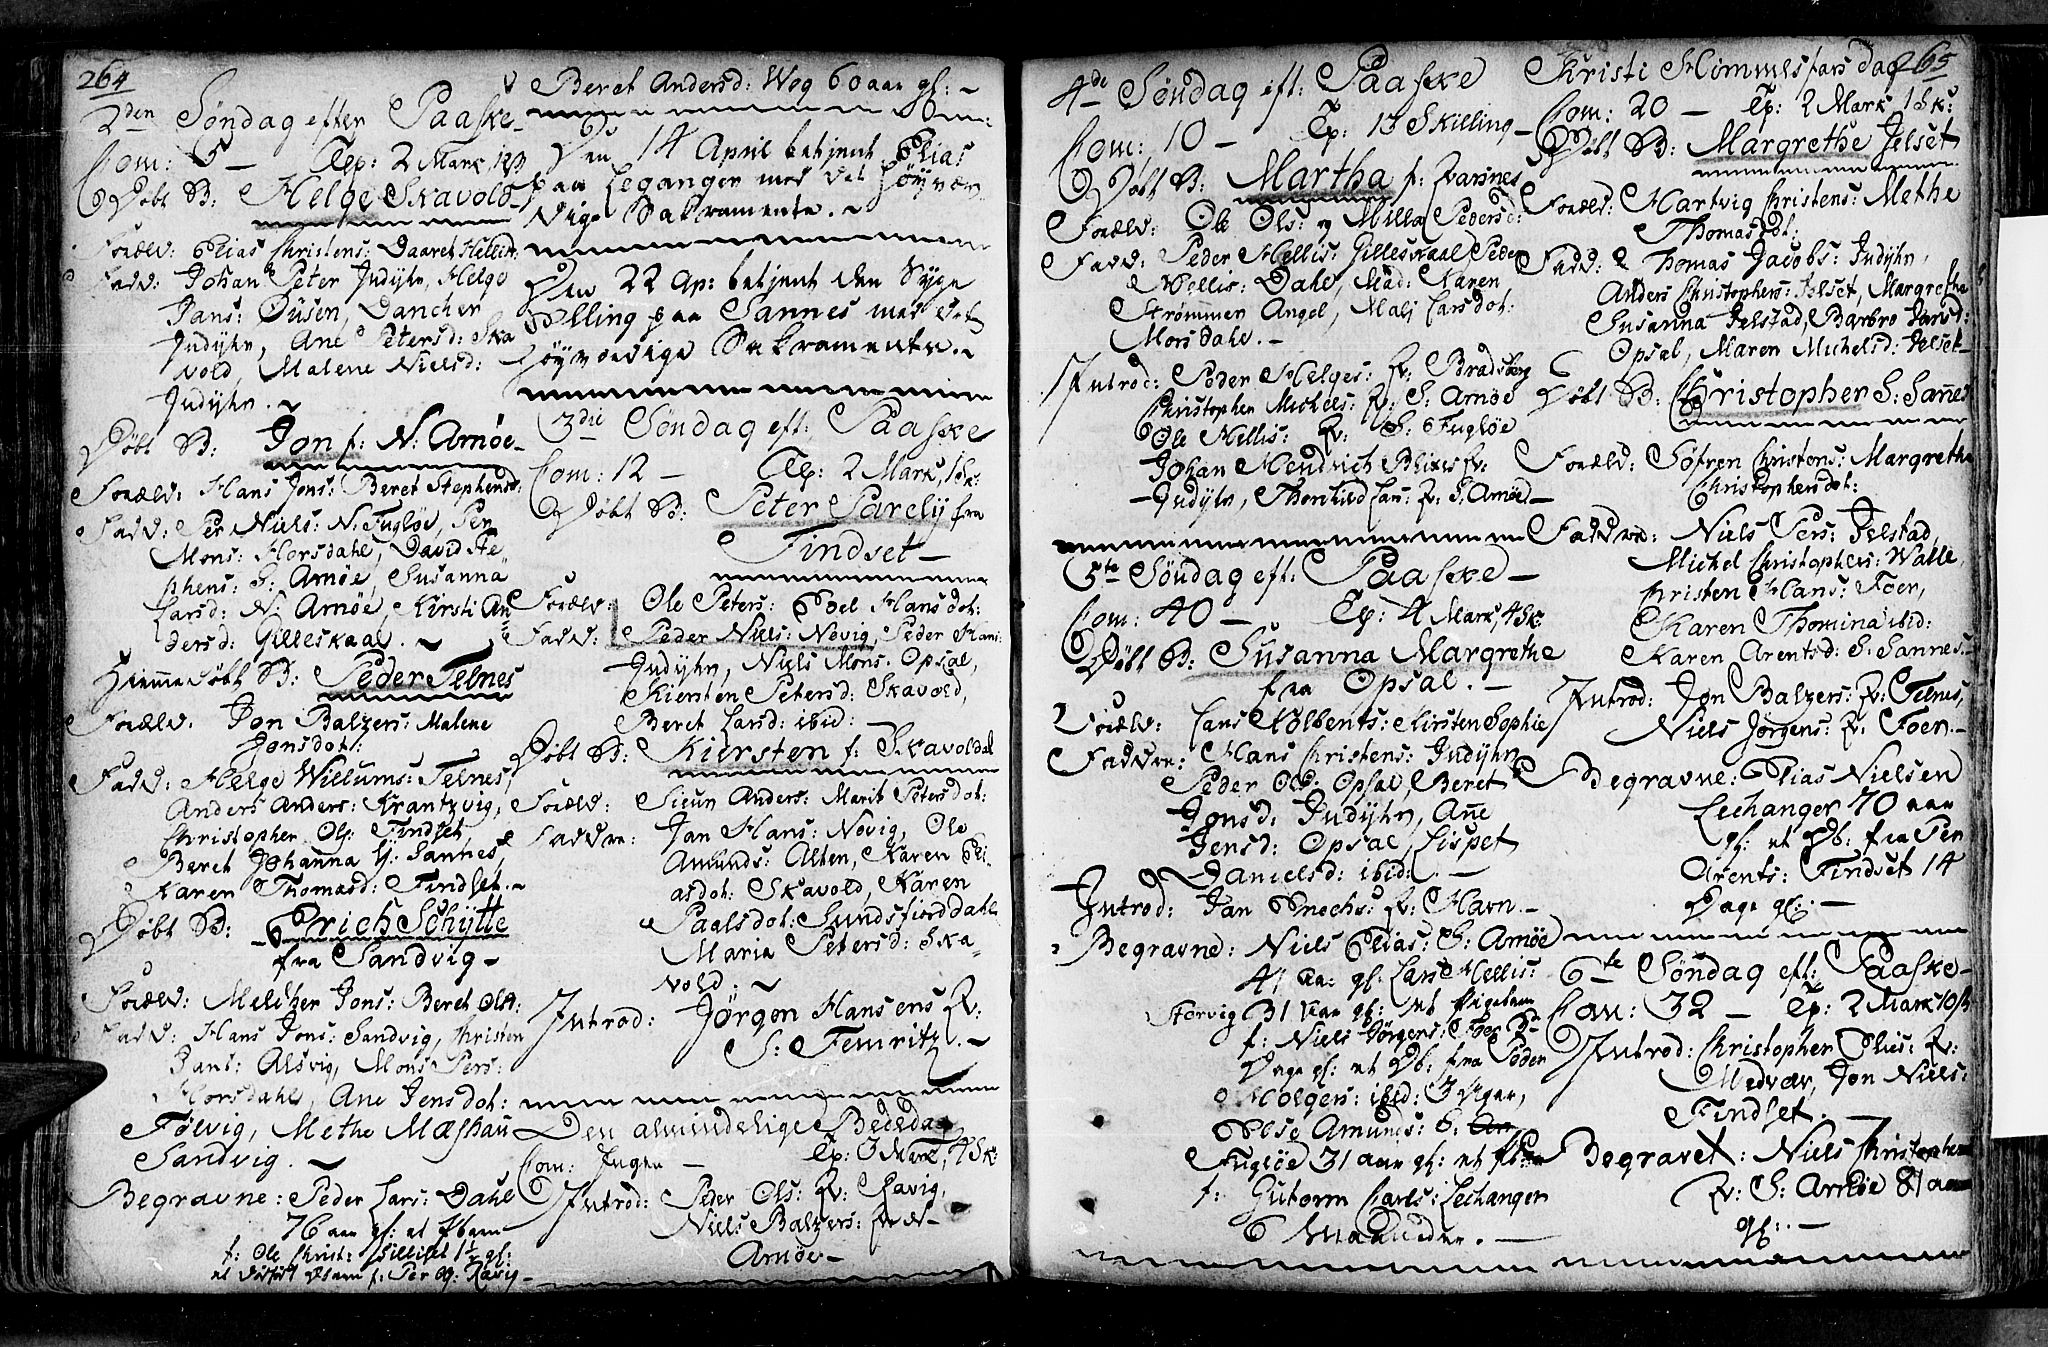 264
2den Søndag efter Paaske
Com: 6 — Tp: 2 Mark
Døbt B: Helge Skavold
Foræld: Elias Christens: Daaret Hellis
Fadd: Johan Peter Indyhr, Helge
Jans: Øusen, Dancher
Indyhr, Ane Petersd: Ska
vold, Malene Nielsd:
Indyhr. ~
Døbt B: Jon f: N: Arnøe
Foræld: Hans Jons: Beret Stephensd:
Fadd: Per Niels: N: Fugløe, Per
Mons: Horsdahl, David Ste
phens: S: Arnøe, Susanna
Larsd: N: Arnøe, Kirsti An
dersd: Gilleskaal. ~
Hiemmedøbt B: Peder Telnes
Foræld: Jon Balzers: Malene
Jonsdot:
Fadd: Helge Willums: Telnes,
Anders Anders: Krantzvig,
Christopher Ols: Findset
Beret Johanna Sannes,
Karen Thomasd: Findset. ~
Døbt B: Erich Schytte
fra Sandvig —
Foræld: Melcher Jons: Beret Olsd:
Fadd: Hans Jons: Sandvig, Christen
Jans: Alsvig, Mons Pers:
Horsdahl, Ane Jensdot:
Følvig, Methe Mashau
Sandvig. ~
Begravne: Peder Lars: Dahl
76 aar gl: et Barn
f: Ole Christ: Gillisæt 1½ gl:
et dødfødt Barn f: Per Ravig —
Beret Andersd: Wog 60 aar gl: ~
Den 14 April betjent Elias
paa Leganger med det Høyvær
dige Sakramente. ~
Den 22 Ap: betjent den Syge
Elling paa Sannes med det
Høyværdige Sakramente. ~
3die Søndag eft: Paaske
Com: 12 — Tp: 2 Mark, 1 Sk:
Døbt B: Peter Parely fra
Findset —
Foræld: Ole Peters: Boel Hansdot:
Fadd: Peder Niels: Nevig, Peder Hans:
Indyhr, Niels Mons: Opsal,
Kiersten Petersd: Skavold,
Beret Larsd: ibid: —
Døbt B: Kiersten f: Skavoldal
Foræld: Siun Anders: Marit Petersdot:
Faddre: Jan Hans: Nevig, Ole
Amunds: Alten, Karen Eli
asdot: Skavold, Karen
Paalsdot: Sundsfiorddahl
Maria Petersd: Ska
vold. ~
Introd: Jørgen Hansens Qv:
S: Femritz. ~
Den almindelige Bededag
Com: Ingen — Tp: 3 Mark, 4 Sk:
Introd: Peder Ols: Qv: Ravig,
Niels Balzers: Qv: N
Arnøe —
265
4de Søndag eft: Paaske
Com: 10 — Tp: 13 Skilling —
Døbt B: Martha f: Qvarsnes
Foræld: Ole Ols: og Milla Pedersd:
Fadd: Peder Hellis: Gilleskaal Peder
Nellis: Dahl, Mad: Karen
Strømmen Angel, Malj Larsdot:
Morsdahl. ~
Introd: Peder Helges: Qv: Bradsberg
Christopher Michels: Qv: S: Arnøe
Ole Nellis: Qv: S: Fugløe
Johan Hendrich Blixes Qv:
Indyhr, Thorkild Lars: Qv: S: Arnøe —
5te Søndag eft: Paaske —
Com: 40 — Tp: 4 Mark, 4 Sk:
Døbt B: Susanna Margrethe
fra Opsal. ~
Foræld: Lars Kolbents: Kirsten Sophie
Faddre: Hans Christens: Indyhr
Peder Ols: Opsal, Beret
Jonsd: Indyhr, Ane
Jensd: Opsal, Lispet
Danielsd: ibid: —
Introd: Jan Enochs: Qv: Havn. ~
Begravne: Niels Elias: S: Arnøe
41 aar gl: Lars Hellis:
Storvig 31 aar gl: et Pigebarn
f: Niels Jørgens: Foer
Dage gl: et Db: fra Peder
Holgers: ibid: 3 Uger,
Else Amunds: S:
Fugløe 31 aar gl: et
f: Gutorm Carls: Lechanger
6 Maaneder. —
Christi Himmelfarsdag
Com: 20 — Tp: 2 Mark 1 Sk:
Døbt B: Margrethe Jelset
Foræld: Hartvig Christens: Methe
Thomasdot:
Fadd: Thomas Jacobs: Indyhr,
Anders Christophers: Jelset, Margrethe
Susanna Jelstad, Barbro Larsd:
Opsal, Maren Michelsd: Jelset —
Døbt B: Christopher S: Sannes
Foræld: Søfren Christens: Margrethe
Christophersdot:
Faddre: Niels Pers: Jelstad,
Michel Christophers: Walle,
Christen Hans: Foer,
Karen Thomina ibid:
Karen Arentsd: S: Sannes. ~
Introd: Jon Balzers: Qv: Telnes,
Niels Jørgens: Qv: Foer. ~
Begravne: Elias Nielsen
Lechanger 70 aar
gl: et Db: fra Per
Arents: Findset 14
Dage gl: —
6te Søndag eft: Paaske —
Com: 32 — Tp: 2 Mark 10 sk
Introd: Christopher Elies: Qv:
Medvær, Jon Niels:
Findset. —
Begravet: Niels Christophers
Qv: S: Arnøe 81 aar
gl: —